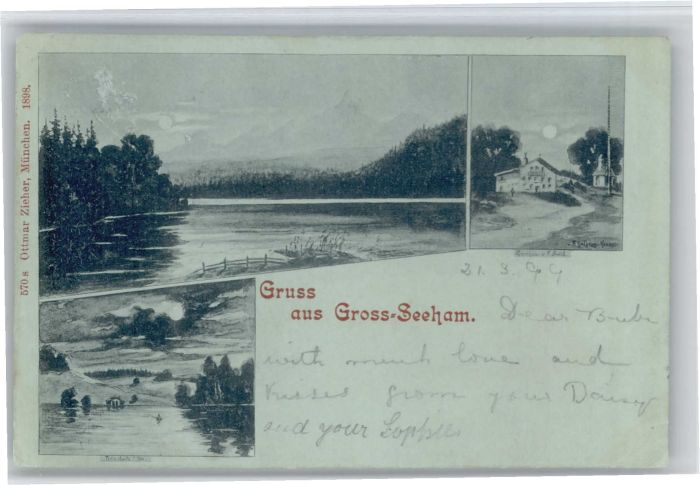 570 s Ottmar Zieher, München. 1898.
Gruss
aus Gross-Seeham.
21. 3. 99
Dear Bube
with much love and
kisses from your Daisy
and your